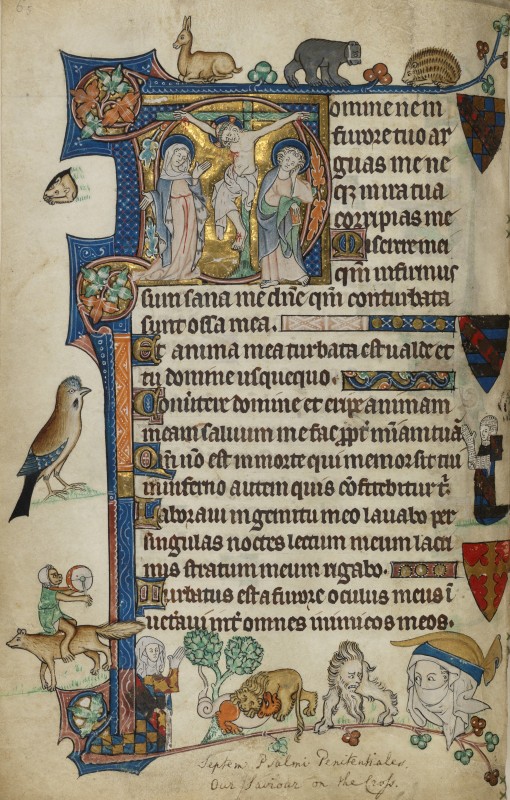 Domine ne in
furore tuo ar
guas me ne
qꝫ in ira tua
corripias me
Miserere mei
qm̄ infirmus
sum sana me dn̄e qm̄ conturbata
sunt ossa mea.
Et anima mea turbata est ualde et
tu domine usquequo.
Conu̾tere domine et eripe animam
meam saluum me fac ꝓpt̾ mīam tuā
Qm̄ nō est in morte qui memor sit tui
in inferno autem quis cōfitebitur t̾.
Laboraui in gemitu meo lauabo per
singulas noctes lectum meum lacri
mis stratum meum rigabo.
Turbatus est a furore oculus meus ī
uet̾aui int̾ omnes inimicos meos.
Septem Psalmi Penitentiales.
Our Saviour on the Cross.